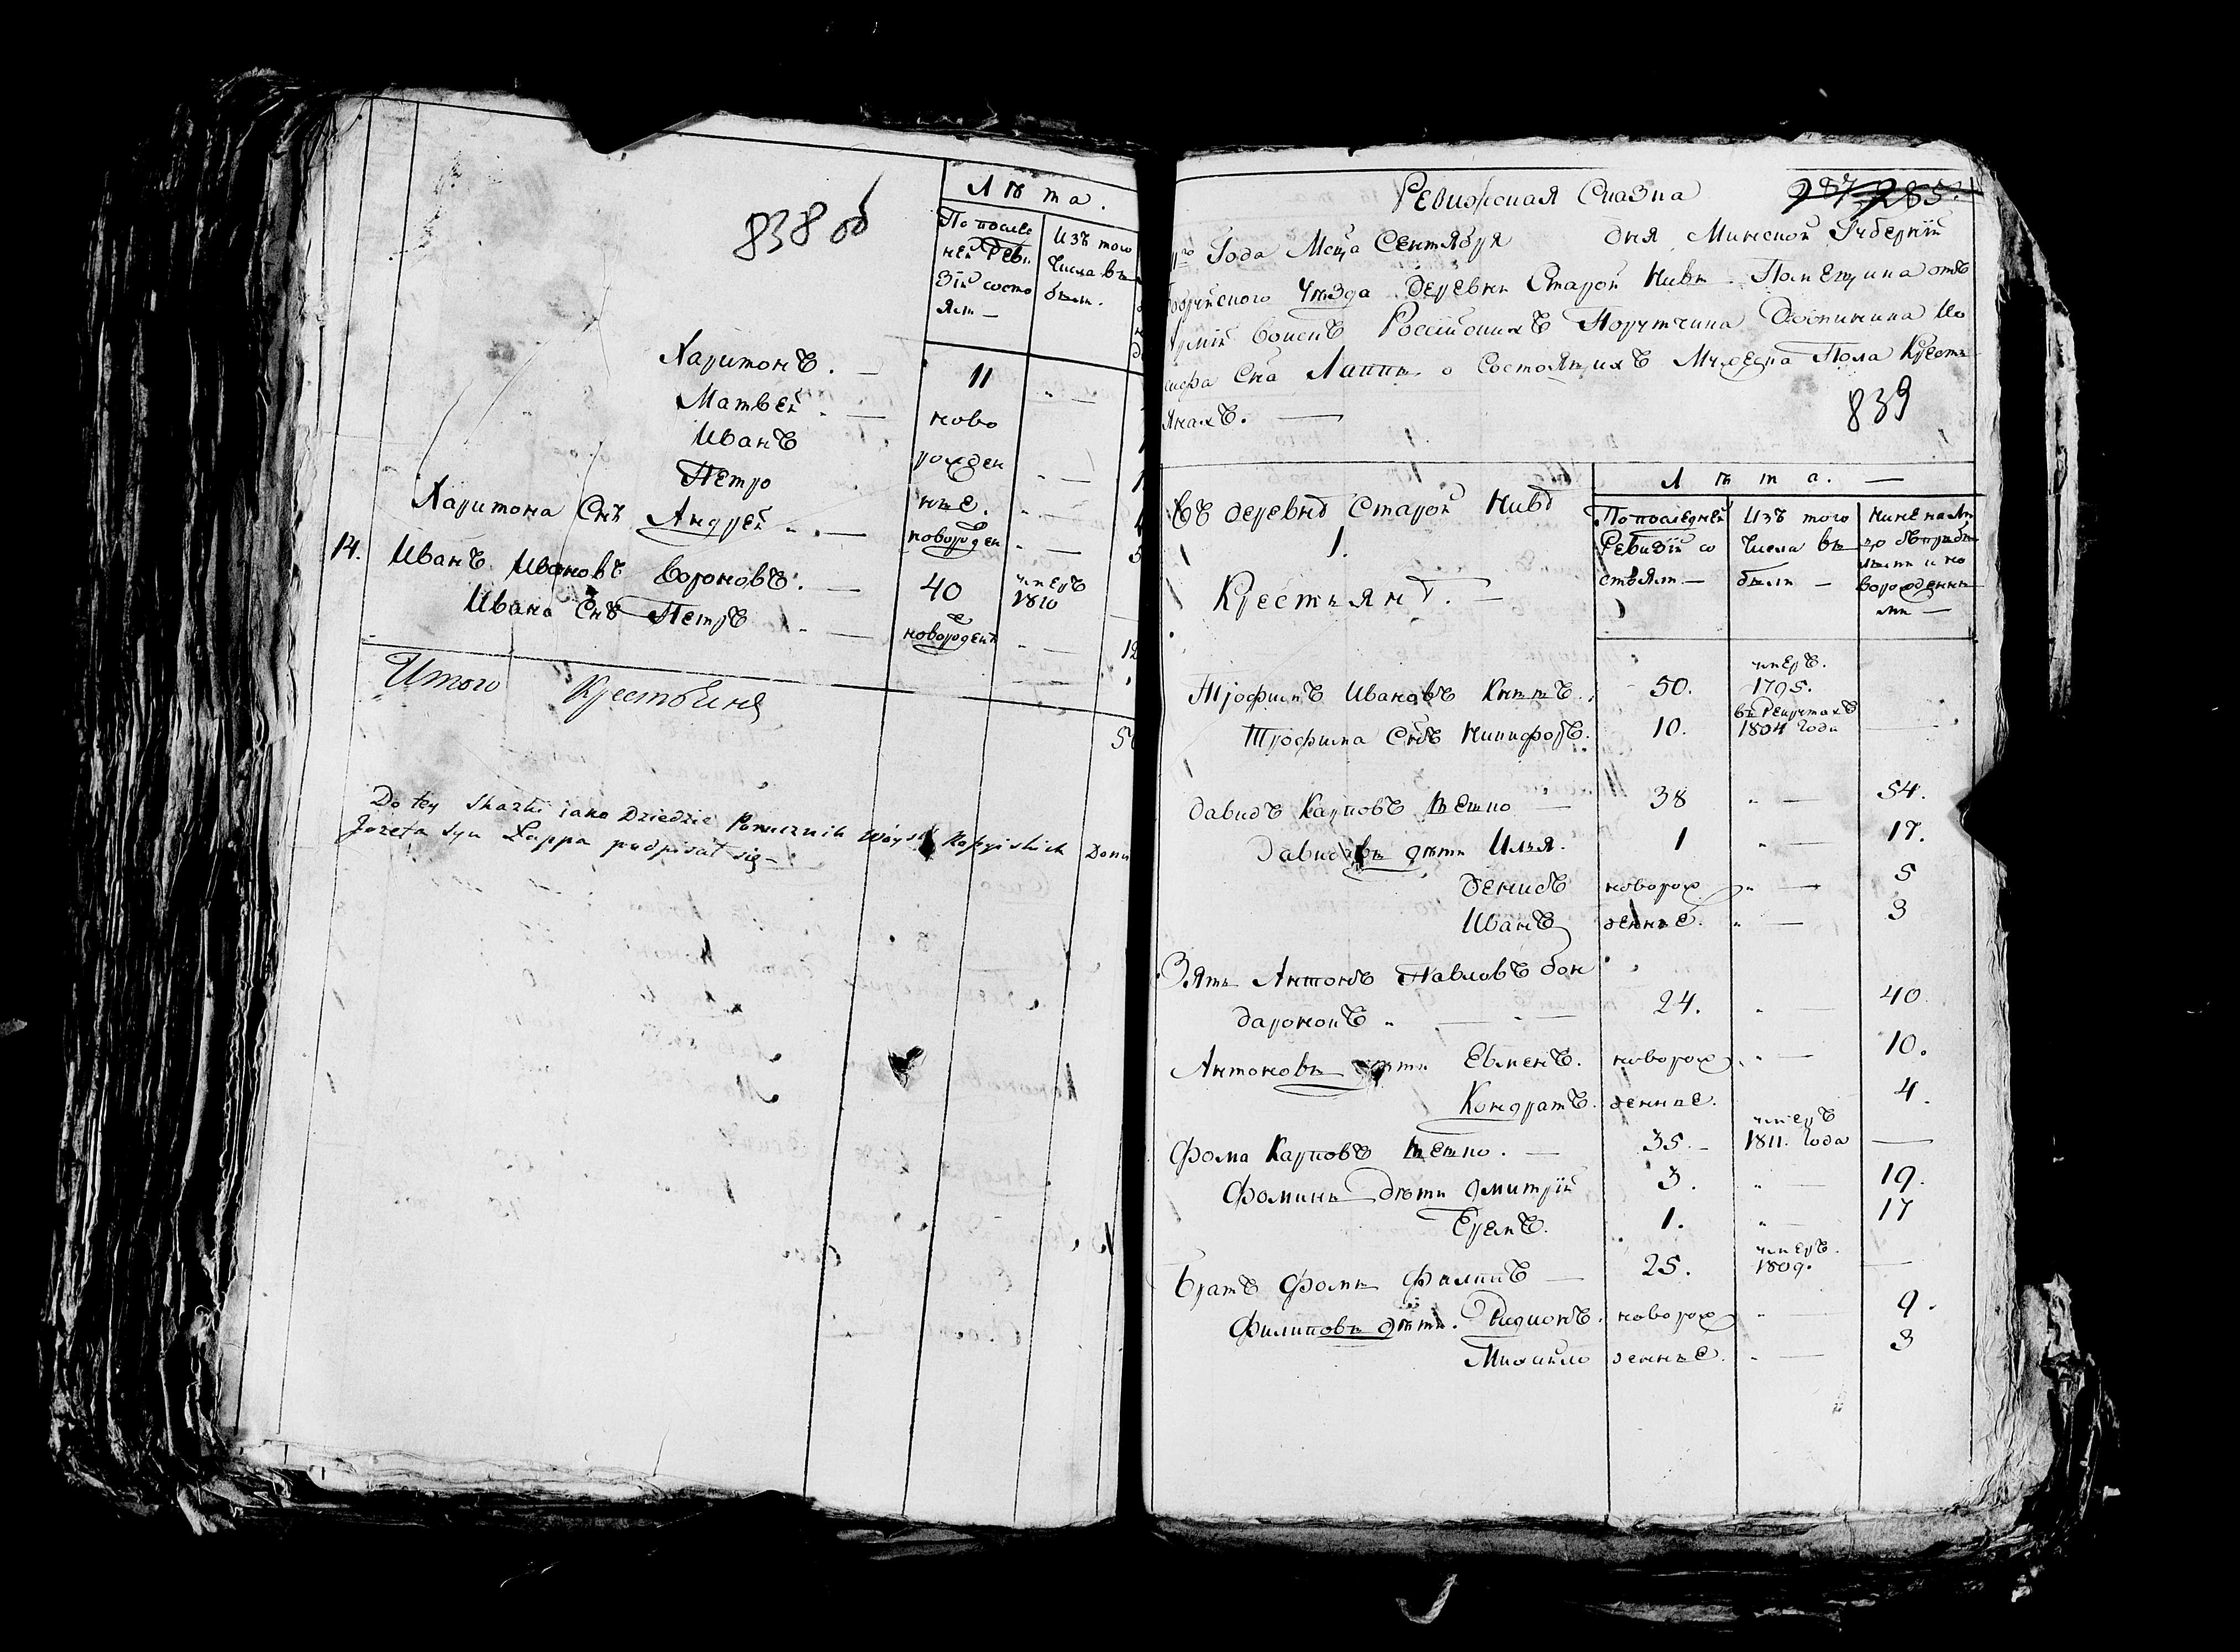 838 об
Лѣта.
По после
ней Реви
зіи состо
яли —
Изъ того
числа вы
были.
Харитонъ. — 11 " —
Матвей. — ново
Иванъ рожден " —
Петро ные. " —
Харитона Снъ Андрей " — новорожден " — 5
14. Иванъ Ивановъ Вороновъ. — 40 умеръ 1810
Ивана Снъ Петръ " — новорожден " — 12
Итого Крестьянъ
Do tey Skazki iako Dziedzic Porucznik Woysk Rossyiskich
Jozefa syn Łappa podpisał się —
Ревижская Сказка
Года Мсца Сентября дня Минской Губерніи
Уѣзда деревни Старой Нивы Помещика отъ
Арміи Воискъ Россійскихъ Поручика Доминика Ио
сифа Сна Лаппы о состоящихъ Мужеска Пола Кресть
янахъ. —
839
Въ деревнѣ Старой Нивѣ
1.
Крестьянъ. —
Лѣта. —
По последней
Ревизіи со
стояли —
Изъ того
числа вы
были —
Ныне на ли
цо съ прибы
лыми и но
ворожденны
ми —
Трофимъ Ивановъ 50. умеръ. 1795.
Трофима Снъ Никифоръ. 10. въ Рекрутахъ 1804 Года —
Давидъ Карповъ — 38 " — 54.
Давидовы дѣти Илья. 1 " — 17.
Денисъ новорож " — 5
Иванъ денные. " — 3
Зять Антонъ Павловъ Бон
даронокъ " — 24. " — 40.
Антоновы дѣти Евменъ. новорож " — 10.
Кондратъ. денные. 4.
Фома Карповъ — 35. — умеръ 1811. Года —
Фомины дѣти Дмитрій 3. " — 19.
Еремъ. 1. " — 17
Братъ Фомы Филипъ — 25. умеръ. 1809. —
Филиповы дѣти. Радионъ. новорож " — 9.
Михайло денные. " — 3